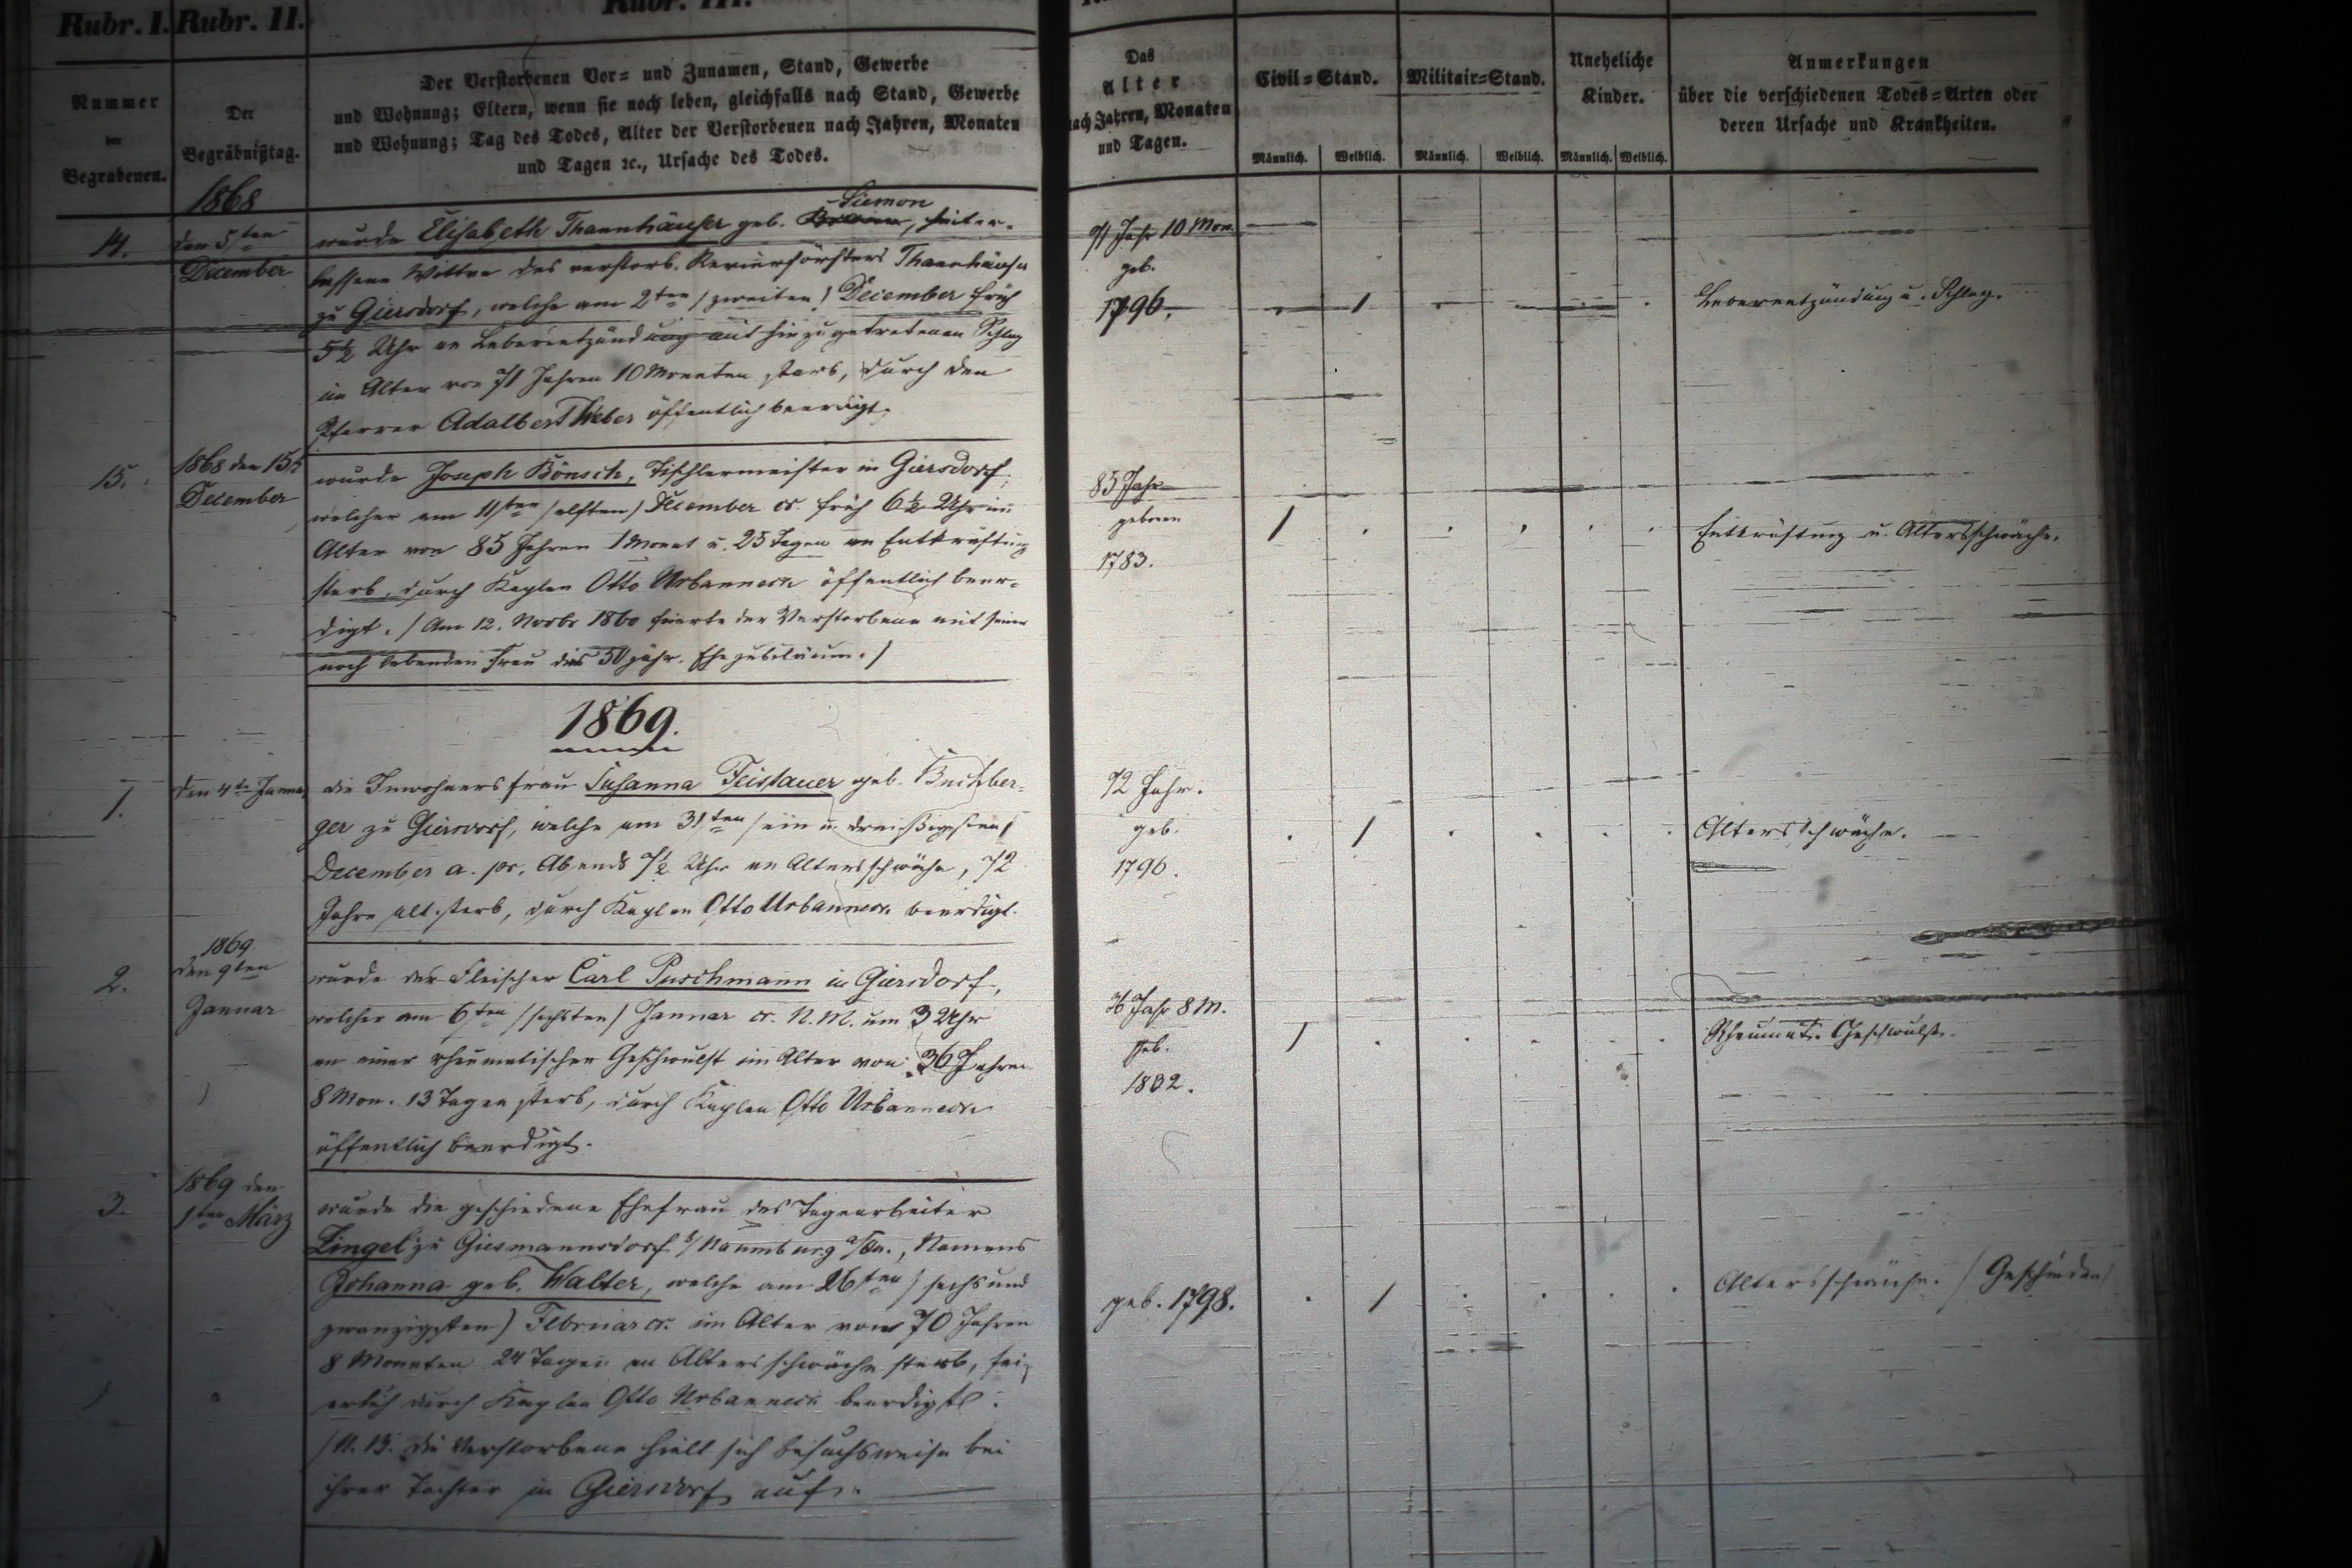 Rubr. I. Rubr. II. Rubr. III.
Nummer
der
Begrabenen.
Der
Begräbnißtag.
Der Verstorbenen Vor= und Zunamen, Stand, Gewerbe
und Wohnung; Eltern, wenn sie noch leben, gleichfalls nach Stand, Gewerbe
und Wohnung; Tag des Todes, Alter der Verstorbenen nach Jahren, Monaten
und Tagen ꝛc., Ursache des Todes.
Das
Alter
nach Jahren, Monaten
und Tagen.
Civil=Stand.
Militair=Stand.
Uneheliche
Kinder.
Männlich. Weiblich. Männlich. Weiblich. Männlich. Weiblich.
Anmerkungen
über die verschiedenen Todes=Arten oder
deren Ursache und Krankheiten.
1868
14.
den 5ten
December
Siemon
wurde Elisabeth Thannhäuser geb. hinter-
lassene Wittwe des verstorb. Revierförsters Thannhäuser
zu Giersdorf, welche am 2ten (zweiten) December früh
5½ Uhr an Leberentzündung mit hinzugetretenen Schlag
im Alter von 71 Jahren 10 Monaten starb, durch den
Pfarrer Adalbert Weber öffentlich beerdigt.
71 Jahr 10 Mon.
geb.
1796.
Leberentzündung u. Schlag.
15.
1868 den 15t
December
wurde Joseph Bönsch, Tischlermeister in Giersdorf,
welcher am 11ten (elften) December cr. früh 6½ Uhr im
Alter von 85 Jahren 1 Monat u. 25 Tagen an Entkräftung
starb, durch Kaplan Otto Urbanneck öffentlich beer-
digt. (Am 12. Novbr 1860 feierte der Verstorbene mit seiner
noch lebenden Frau das 50jähr. Ehejubiläum.)
85 Jahr
geboren
1783.
Entkräftung u. Altersschwäche.
1869.
1.
den 4te Januar
die Inwohnersfrau Susanna Feistauer geb. Buchber-
ger zu Giersdorf, welche am 31ten (ein u. dreißigsten)
December a. pr. Abends 7½ Uhr an Altersschwäche, 72
Jahre alt starb, durch Kaplan Otto Urbanneck beerdigt.
72 Jahr.
geb.
1796.
Altersschwäche.
2.
1869
den 9ten
Januar
wurde der Fleischer Carl Puschmann in Giersdorf,
welcher am 6ten (sechsten) Januar cr. N. M. um 3 Uhr
an einer rheumatischen Geschwulst im Alter von 36 Jahren
8 Mon. 13 Tagen starb, durch Kaplan Otto Urbanneck
öffentlich beerdigt.
36 Jahr 8 M.
geb.
1832.
Rheumat. Geschwulst.
3.
1869 den
1ten März
wurde die geschiedene Ehefrau des Tagearbeiter
Zingel zu Giesmannsdorf b/Naumburg a/Qu., Namens
Johanna geb. Walter, welche am 26ten (sechs und
zwanzigsten) Februar cr. im Alter von 70 Jahren
8 Monaten 24 Tagen an Altersschwäche starb, fei-
erlich durch Kaplan Otto Urbanneck beerdigt.
(N. B. Die Verstorbene hielt sich besuchsweise bei
ihrer Tochter in Giersdorf auf.
geb. 1798.
Altersschwäche. (Geschieden)